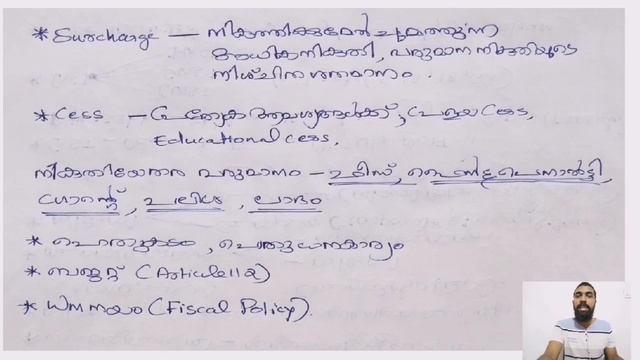 * Surcharge — നികുതിക്കുമേൽ ചുമത്തുന്ന
അധികനികുതി, വരുമാന നികുതിയുടെ
നിശ്ചിത ശതമാനം.
* Cess — പ്രത്യേക ആവശ്യങ്ങൾക്ക്, പ്രളയ Cess,
Educational cess.
നികുതിയേതര വരുമാനം - ഫീസ്, ഫൈൻ & പെനാൽട്ടി,
ഗ്രാന്റ്, പലിശ, ലാഭം
* പൊതുകടം, പൊതുധനകാര്യം
* ബജറ്റ് (Article 112)
* ധനനയം (Fiscal Policy).